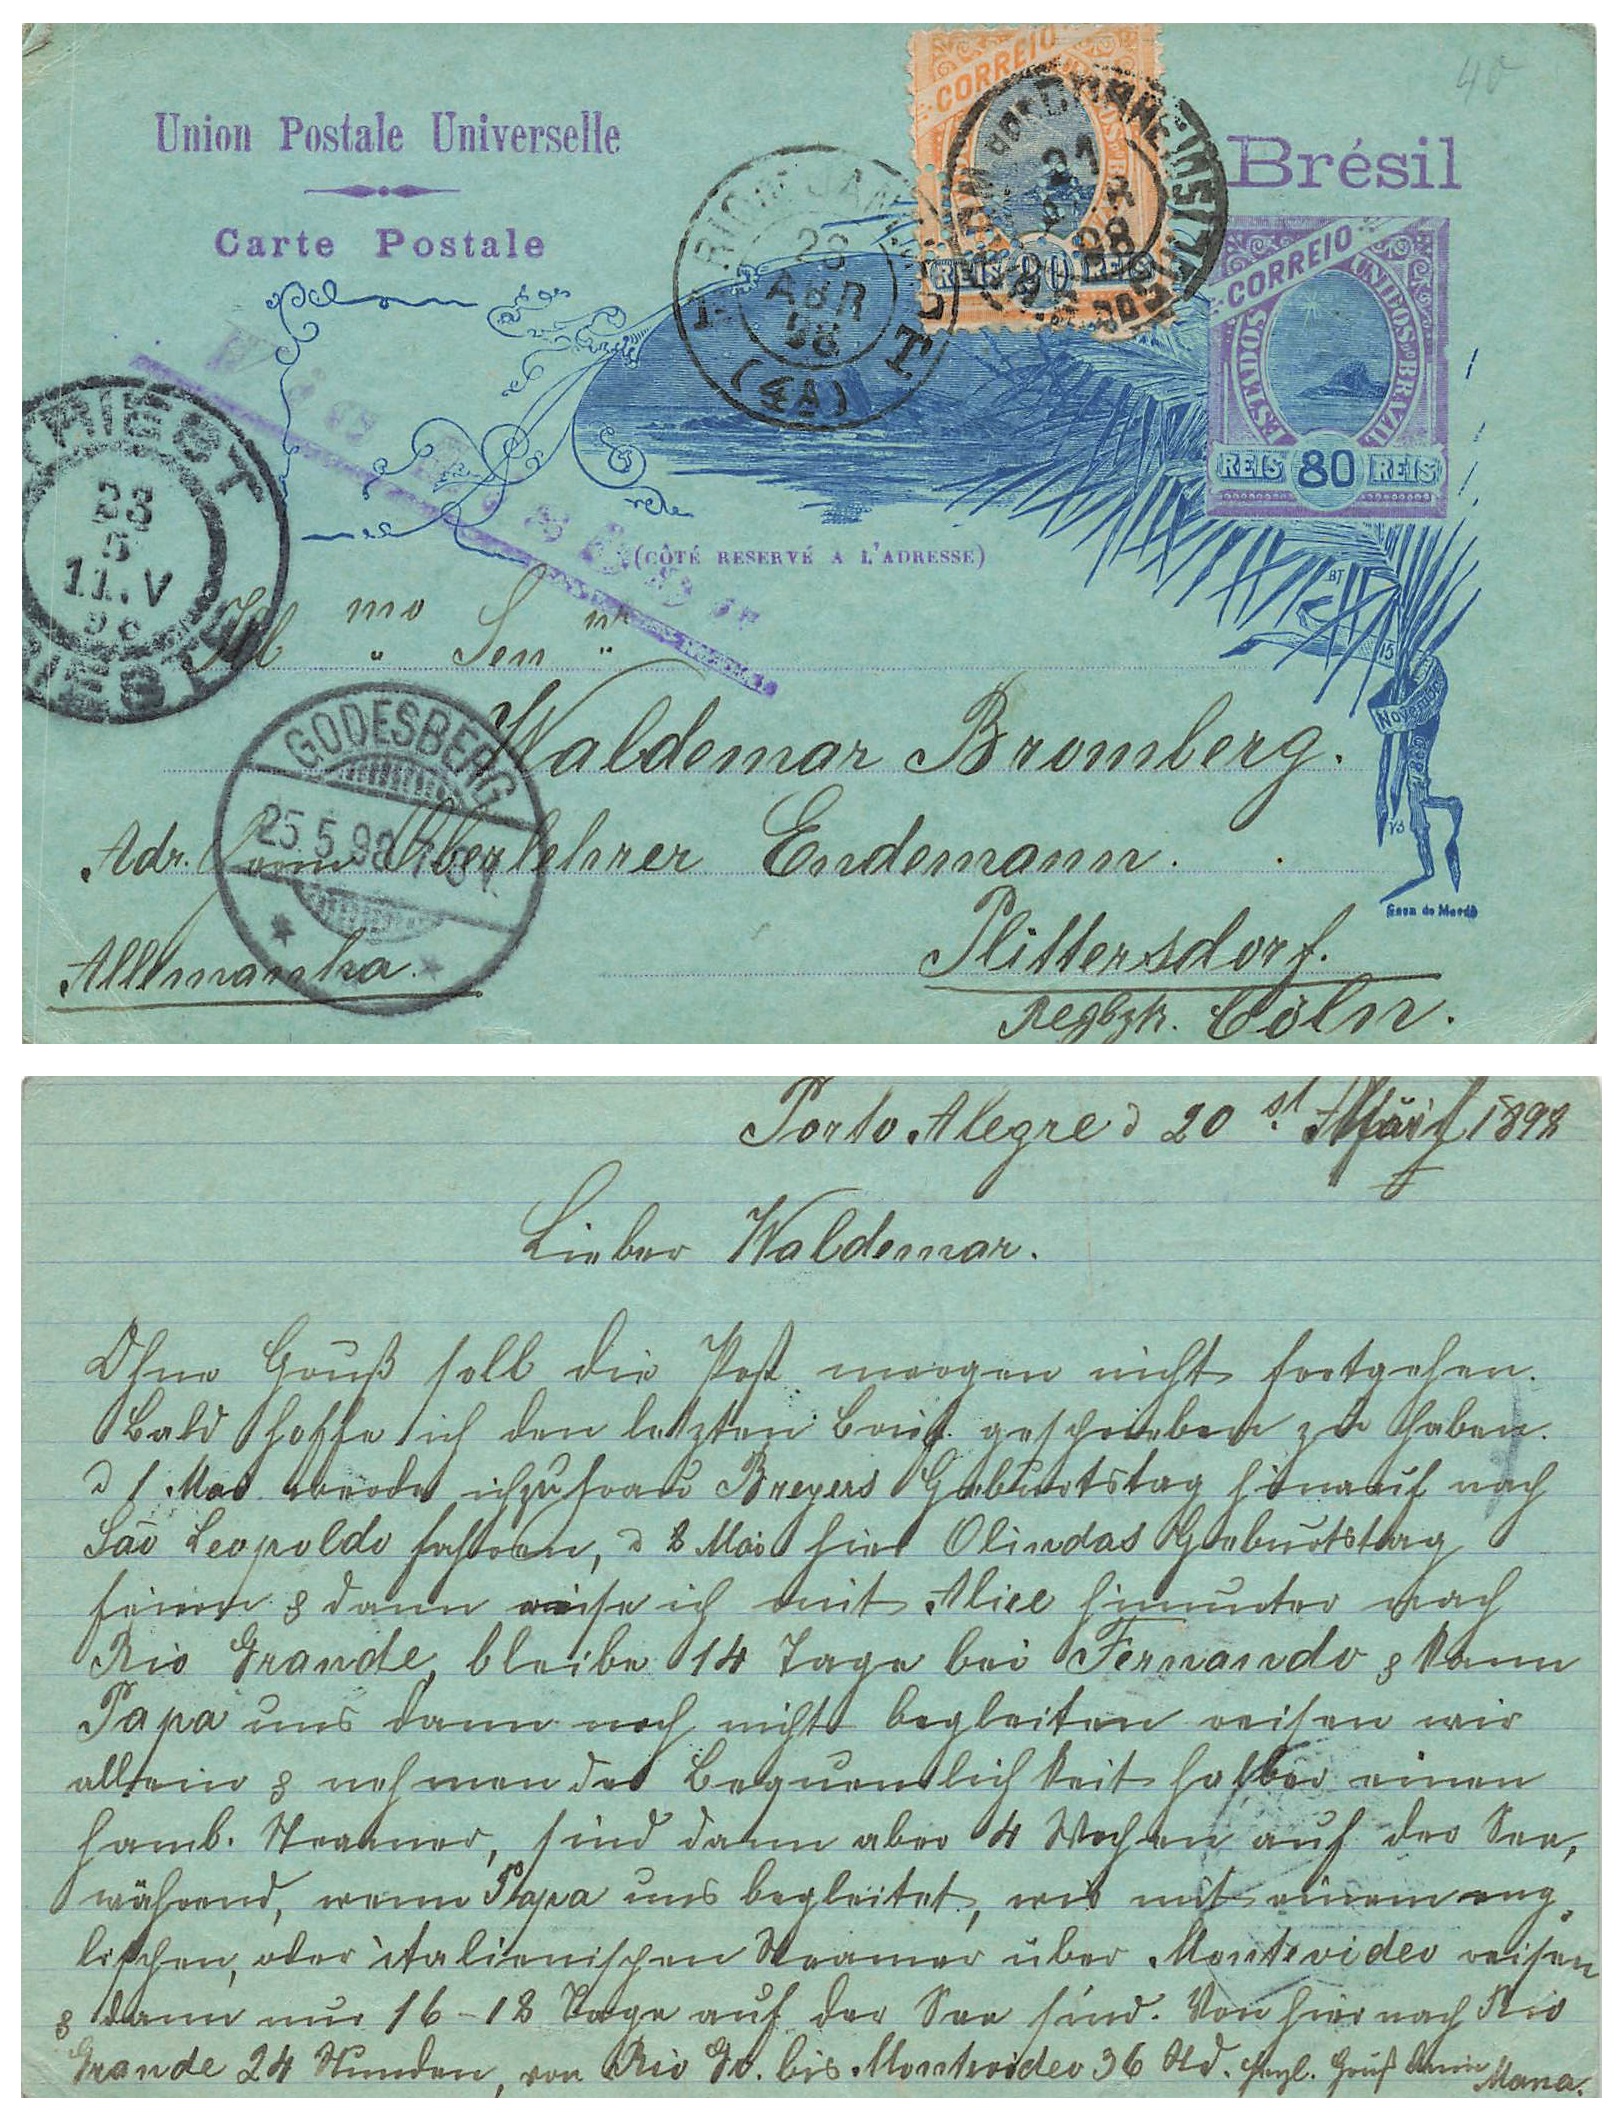 40
Union Postale Universelle
Brésil
Carte Postale
CORREIO
REIS 80 REIS
RIO DE JANEIRO
28
ABR
98
(4A)
CORREIO
ESTADOS UNIDOS DO BRAZIL
REIS 80 REIS
TRIEST
23
5
11.V
98
TRIEST
(CÔTÉ RESERVÉ A L'ADRESSE)
BT
15
Novembro
Ill mo Sen nr
Waldemar Bromberg.
GODESBERG
25.5.98
Adr. Oberlehrer Endemann.
Casa da Moeda
Allemanha.
Plittersdorf.
Regbzk. Cöln.
Porto Alegre d 20 st. April 1898
Lieber Waldemar.
Ohne Gruß soll die Post morgen nicht fortgehen.
Bald hoffe ich den letzten Brief geschrieben zu haben.
d 1 Mai werde ich zu Frau Breyers Geburtstag hinauf nach
São Leopoldo fahren, d 8 Mai hier Olindas Geburtstag
feiern & dann reise ich mit Alice hinunter nach
Rio Grande, bleibe 14 Tage bei Fernando & kann
Papa uns dann noch nicht begleiten reisen wir
allein & nehmen der Bequemlichkeit halber einen
hamb. Steamer, sind dann aber 4 Wochen auf der See,
während, wenn Papa uns begleitet, wir mit einem eng
lischen, oder italienischen Steamer über Montevideo reisen
& dann nur 16-18 Tage auf der See sind. Von hier nach Rio
Grande 24 Stunden, von Rio Gr. bis Montevideo 36 Std. Herzl. Gruß Deine Mama.